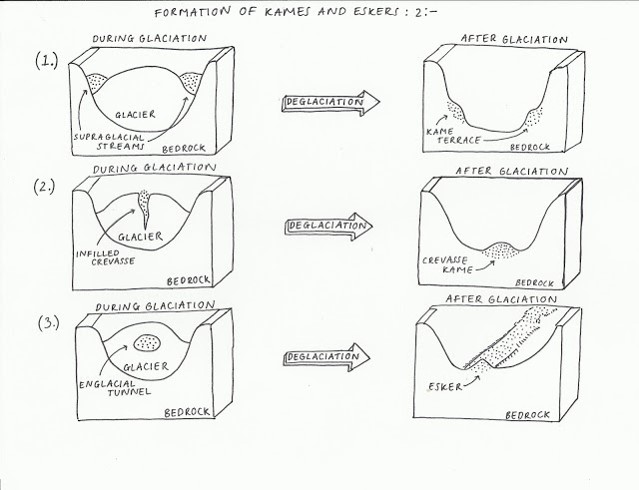 FORMATION OF KAMES AND ESKERS : 2:-
(1.)
DURING GLACIATION
GLACIER
SUPRAGLACIAL
STREAMS
BEDROCK
DEGLACIATION
AFTER GLACIATION
KAME
TERRACE
BEDROCK
(2.)
DURING GLACIATION
GLACIER
INFILLED
CREVASSE
BEDROCK
DEGLACIATION
AFTER GLACIATION
CREVASSE
KAME
BEDROCK
(3.)
DURING GLACIATION
GLACIER
ENGLACIAL
TUNNEL
BEDROCK
DEGLACIATION
AFTER GLACIATION
ESKER
BEDROCK